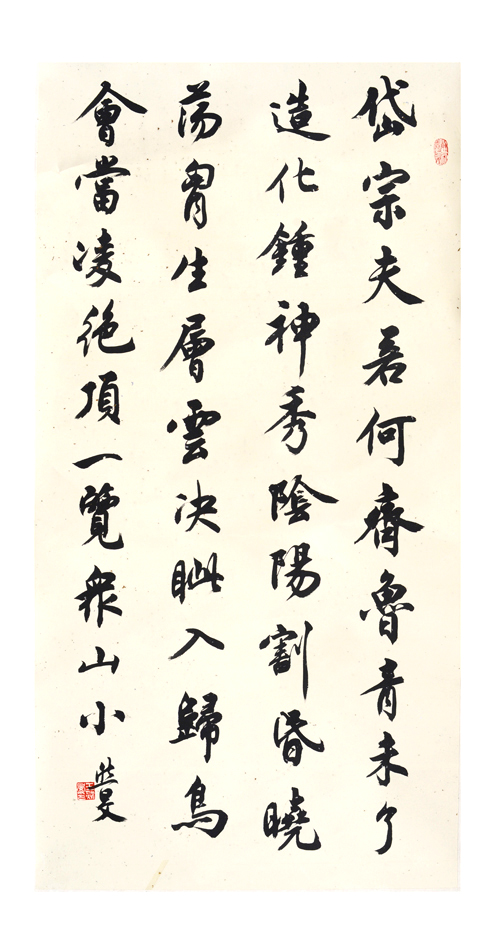 岱宗夫若何齊魯青未了
造化鍾神秀陰陽割昏曉
荡胷生層雲决眦入歸鳥
會當凌絕頂一覽衆山小